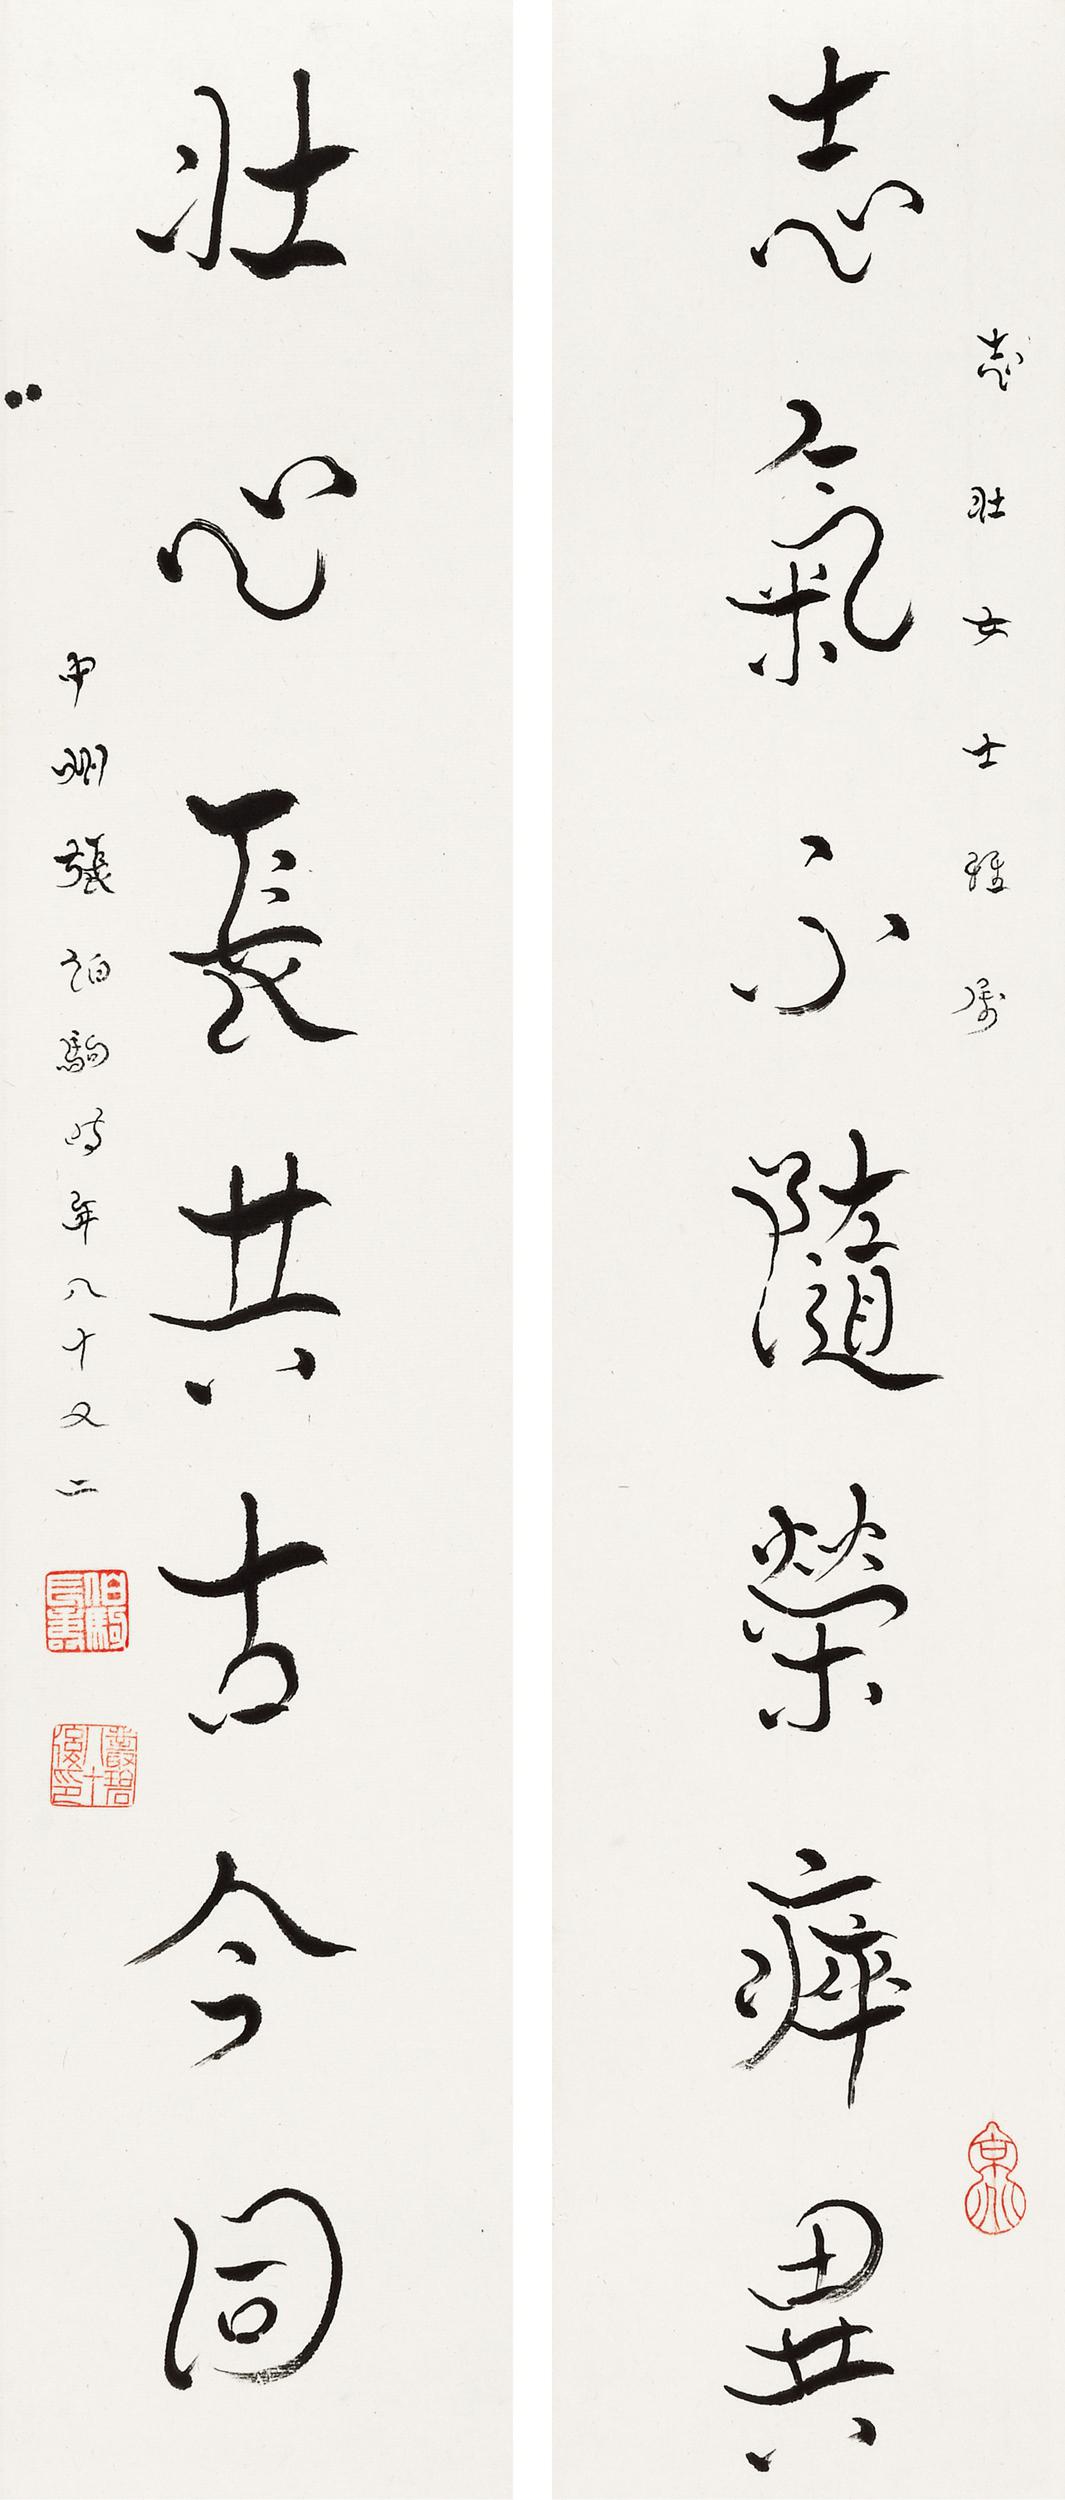 志壯女士雅屬
志氣不隨榮瘁異
壯心長共古今同
中州張伯駒時年八十又二
京兆
伯駒長壽
叢碧八十後印